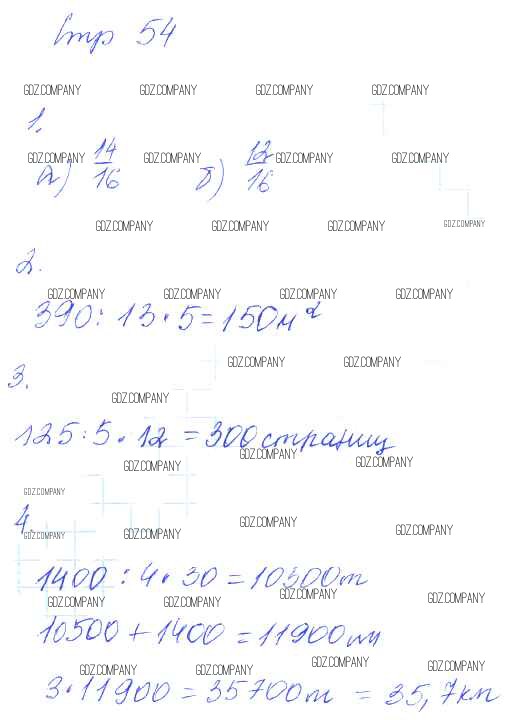 Стр 54
GDZ.COMPANY GDZ.COMPANY GDZ.COMPANY GDZ.COMPANY
1.
GDZ.COMPANY GDZ.COMPANY GDZ.COMPANY GDZ.COMPANY
а) 14/16 б) 12/16
GDZ.COMPANY GDZ.COMPANY GDZ.COMPANY GDZ.COMPANY
2.
GDZ.COMPANY GDZ.COMPANY GDZ.COMPANY GDZ.COMPANY
390 : 13 • 5 = 150 м²
GDZ.COMPANY GDZ.COMPANY
3.
GDZ.COMPANY
125 : 5 • 12 = 300 страниц
GDZ.COMPANY GDZ.COMPANY GDZ.COMPANY
GDZ.COMPANY
4.
GDZ.COMPANY GDZ.COMPANY GDZ.COMPANY GDZ.COMPANY
1400 : 4 • 30 = 10300 м
GDZ.COMPANY GDZ.COMPANY GDZ.COMPANY GDZ.COMPANY
10500 + 1400 = 11900 м
GDZ.COMPANY GDZ.COMPANY GDZ.COMPANY GDZ.COMPANY
3 • 11900 = 35700 м = 35,7 км